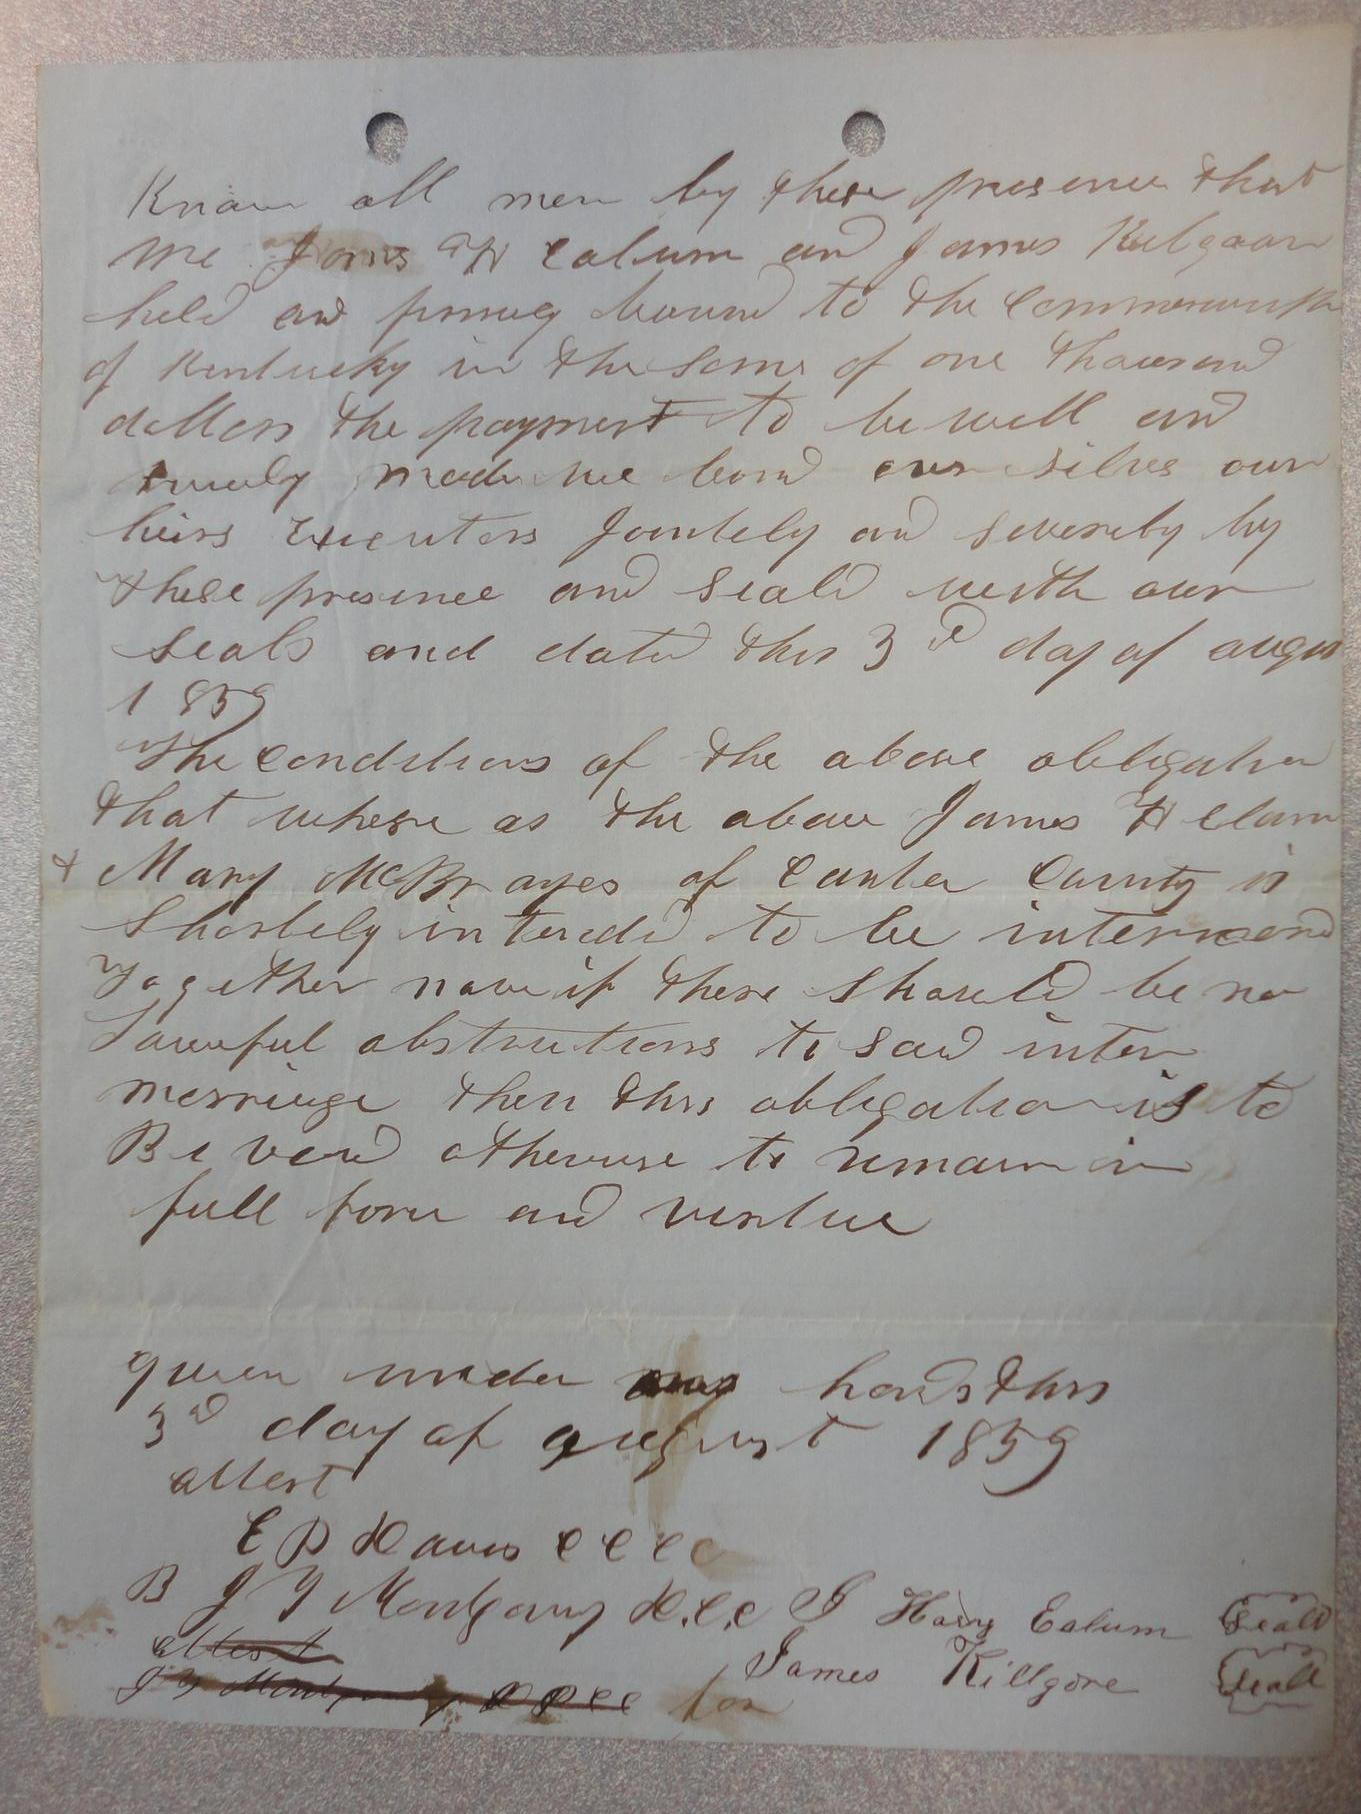 Know all men by these presence that
We James H Ealum and James Kilgoar
held and firmly bound to the Commonwealth
of Kentucky in the some of one thousand
dollars the payment to be well and
truely made we bond our selves our
heirs Executors Jointely and severely by
these presence and seald with our
seals and dated this 3d day of august
1859
The Conditions of the above obligation
that where as the above James H Elam
& Mary McBrayes of Carter County is
Shortely intended to be
together now if there should be no
Lawful obstructions to said inter
merriage then this obligation is to
Be void otherwise to remain in
full force and vertue
given under my hands this
3d day of august 1859
attest
E D Davis C C C C
B J Y Montgomry D.C.C J Harvy Ealum Seald
attest James Killgore Seald
J Y Montgomry D C C C for